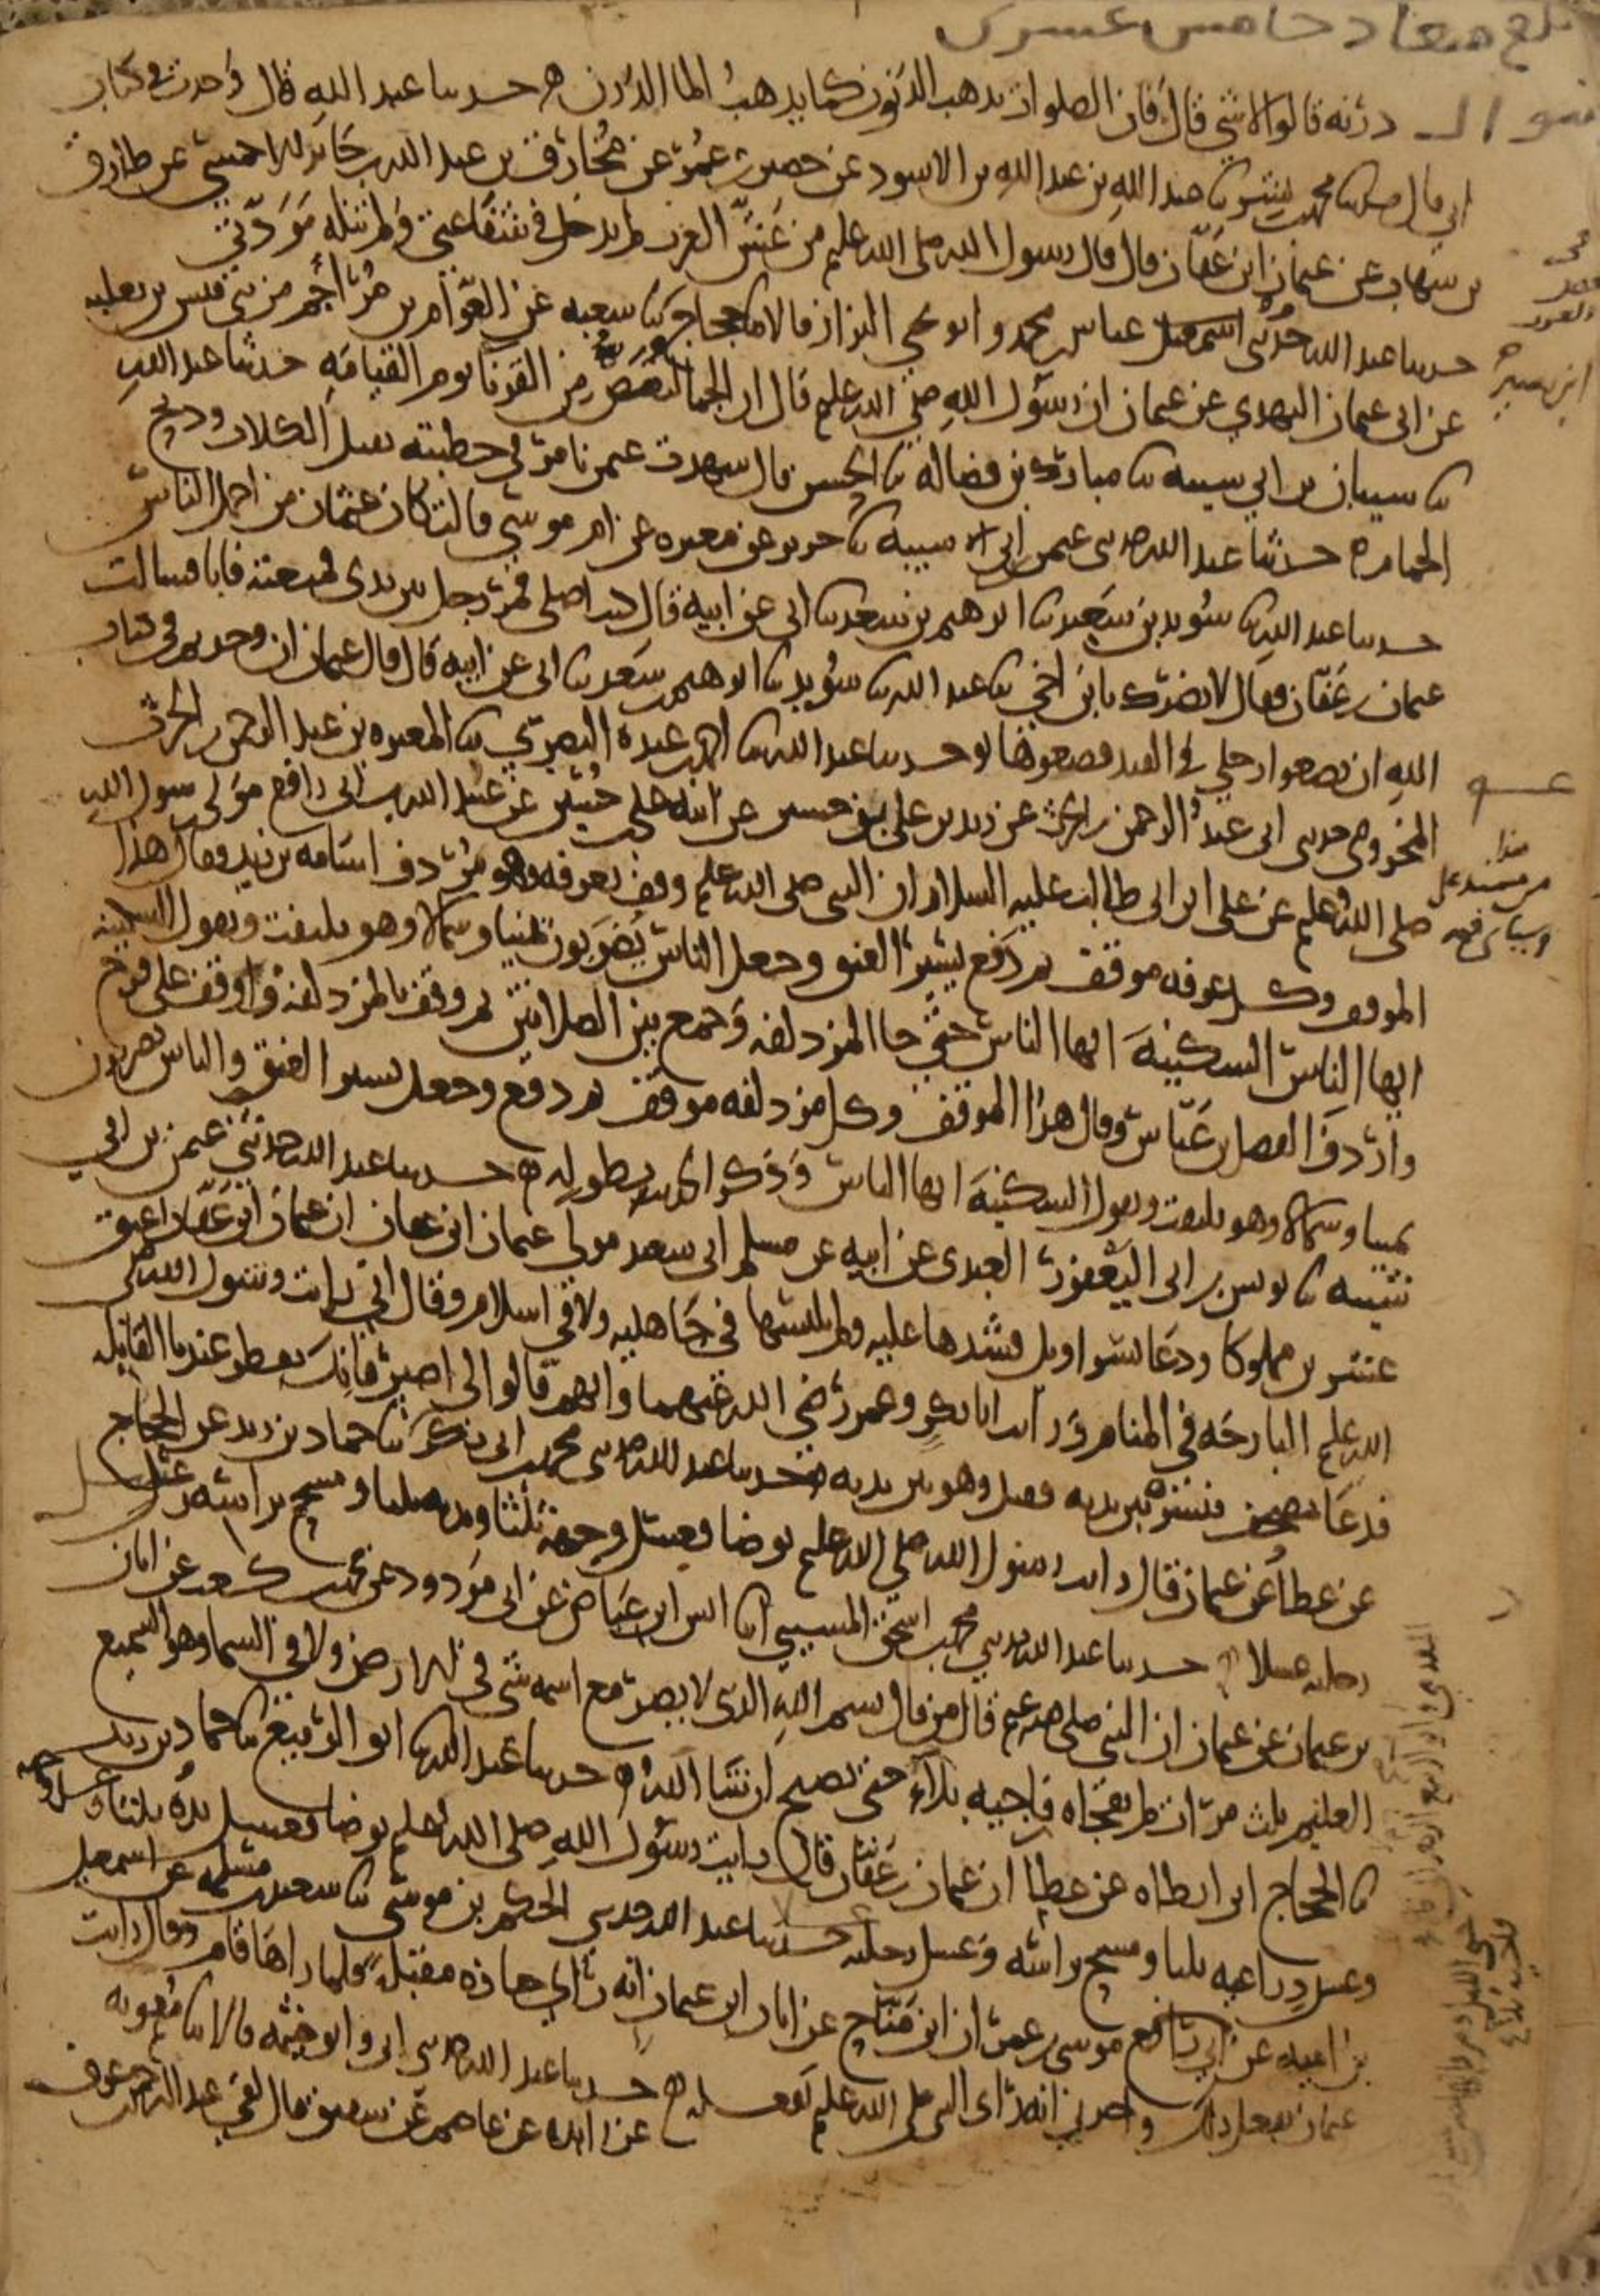 بلغ معاد خامس عشرى
درنه قالوا لا شي قال فان الصلوات تذهب الذنوب كما يذهب الما الدرن ه حدثنا عبد الله قال وجدت في كتاب
ابي قال حدثنا محمد بن بشر حدثنا عبد الله بن عبد الله بن الاسود عن حصين بن عمر عن مخارق بن عبد الله بن جابر الاحمسي عن طارق
بن شهاب عن عثمان ابن عفان قال قال رسول الله صلى الله عليه من غش العرب لم يدخل في شفاعتي ولم تنله مودتي
حدثنا عبد الله حدثني عباس بن محمد وابو يحيى البزاز قالا حدثنا حجاج بن نصير حدثنا شعبه عن العوام بن مزاجم من بني قيس بن ثعلبه
عن ابي عثمان النهدي عن عثمان ان رسول الله صلى الله عليه قال ان الجما لتقص من القرنا يوم القيامه حدثنا عبد الله
نا شيبان بن ابي شيبه نا مبارك بن فضاله نا الحسن قال شهدت عثمن يامر في خطبته بقتل الكلاب وذبح
الحمام ه حدثنا عبد الله حدثني عثمن ابن ابي شيبه نا جرير عن مغيره عن ام موسى قالت كان عثمان من اجمل الناس
حدثنا عبد الله نا سويد بن سعيد نا ابرهيم بن سعد نا ابي عن ابيه قال كنت اصلي فمر رجل بين يدي فمنعته فابا فسالت
عثمان بن عفان فقال لا يضرك يا بن اخي نا عبد الله نا سويد نا ابرهيم بن سعد نا ابي عن ابيه قال قال عثمان ان وجدتم في كتاب
الله ان تضعوا رجلي في القيد فضعوها حدثنا عبد الله نا احمد بن عبدة البصري نا المغيره بن عبد الرحمن بن الحرث
المخزومي حدثني ابي عبد الرحمن بن الحرث عن زيد بن علي بن حسين عن ابيه علي بن حسين عن عبيد الله بن ابي رافع مولى رسول الله
صلى الله عليه عن علي ابن ابي طالب عليه السلام ان النبي صلى الله عليه وقف بعرفه وهو مردف اسامه بن زيد وقال هذا
الموقف وكل عرفه موقف ثم دفع يسير العنق وجعل الناس يضربون يمينا وشمالا وهو يلتفت ويقول السكينه
ايها الناس السكينة ايها الناس حتى جا المزدلفه وجمع بين الصلاتين ثم وقف بالمزدلفه فاوقف على قزح
واردف الفضل بن عباس وقال هذا الموقف وكل مزدلفه موقف ثم دفع وجعل يسير العنق والناس يضربون
يمينا وشمالا وهو يلتفت ويقول السكينة ايها الناس وذكر الحديث بطوله ه حدثنا عبد الله حدثني عثمن بن ابي
شيبه نا يونس بن ابي اليعفور العبدي عن ابيه عن مسلم ابي سعيد مولى عثمان ابن عفان ان عثمان ابن عفان اعتق
عشرين مملوكا ودعا بسراويل فشدها عليه ولم يلبسها في جاهليه ولا في اسلام وقال اني رايت رسول الله صلى
الله عليه البارحه في المنام ورايت ابا بكر وعمر رضي الله عنهما وانهم قالوا لي اصبر فانك تفطر عندنا القابله
فدعا بمصحف فنشره بين يديه فقتل وهو بين يديه حدثنا عبد الله حدثني محمد بن ابي بكر نا حماد بن زيد عن الحجاج
عن عطا عن عثمان قال رايت رسول الله صلى الله عليه توضا فغسل وجهه ثلثا ويديه ثلثا ومسح براسه وغسل
رجليه غسلا حدثنا عبد الله حدثني محمد بن اسحق المسيبي نا انس ابن عياض عن ابي مودود عن محمد بن كعب عن ابان
بن عثمان عن عثمان ان النبي صلى الله عليه قال من قال بسم الله الذي لا يضر مع اسمه شي في الارض ولا في السما وهو السميع
العليم ثلث مرات لم تفجاه فاجيه بلاء حتى تصبح ان شا الله ه حدثنا عبد الله نا ابو الربيع نا حماد بن زيد
نا الحجاج ابن ارطاه عن عطا ان عثمان بن عفان قال رايت رسول الله صلى الله عليه توضا فغسل يده ثلثا وغسل وجهه
وغسل ذراعيه ثلثا ومسح براسه وغسل رجليه حدثنا عبد الله حدثني الحكم بن موسى نا سعيد بن مسلمه عن اسمعيل
بن اميه عن موسى بن عمر ان ابن مناح عن ابان ابن عثمان انه راى جنازه مقبله فلما راها قام وقال رايت
عثمان يفعل ذلك واخبرني انه راى النبي صلى الله عليه يفعله ه حدثنا عبد الله حدثني ابي وابو خيثمه قالا نا معويه
عن زايده عن عاصم عن شقيق قال لقي عبد الرحمن بن عوف